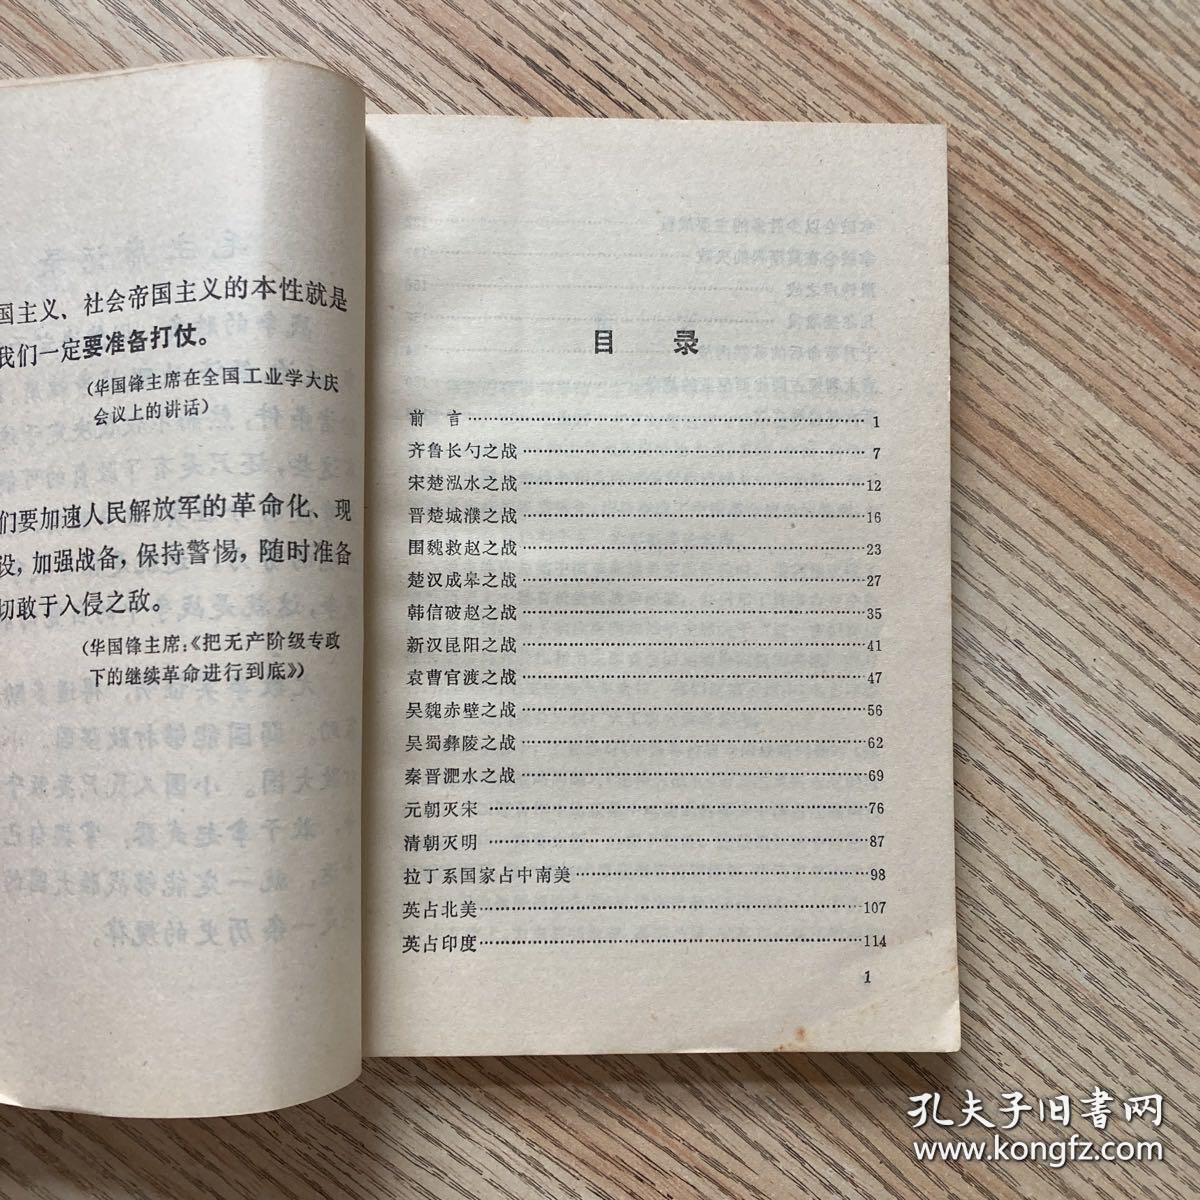 国主义、社会帝国主义的本性就是
我们一定要准备打仗。
(华国锋主席在全国工业学大庆
会议上的讲话)
们要加速人民解放军的革命化、现
设,加强战备,保持警惕,随时准备
切敢于入侵之敌。
(华国锋主席:《把无产阶级专政
下的继续革命进行到底》)
目 录
前 言 1
齐鲁长勺之战 7
宋楚泓水之战 12
晋楚城濮之战 16
围魏救赵之战 23
楚汉成皋之战 27
韩信破赵之战 35
新汉昆阳之战 41
袁曹官渡之战 47
吴魏赤壁之战 56
吴蜀彝陵之战 62
秦晋淝水之战 69
元朝灭宋 76
清朝灭明 87
拉丁系国家占中南美 98
英占北美 107
英占印度 114
1
孔夫子旧书网
www.kongfz.com